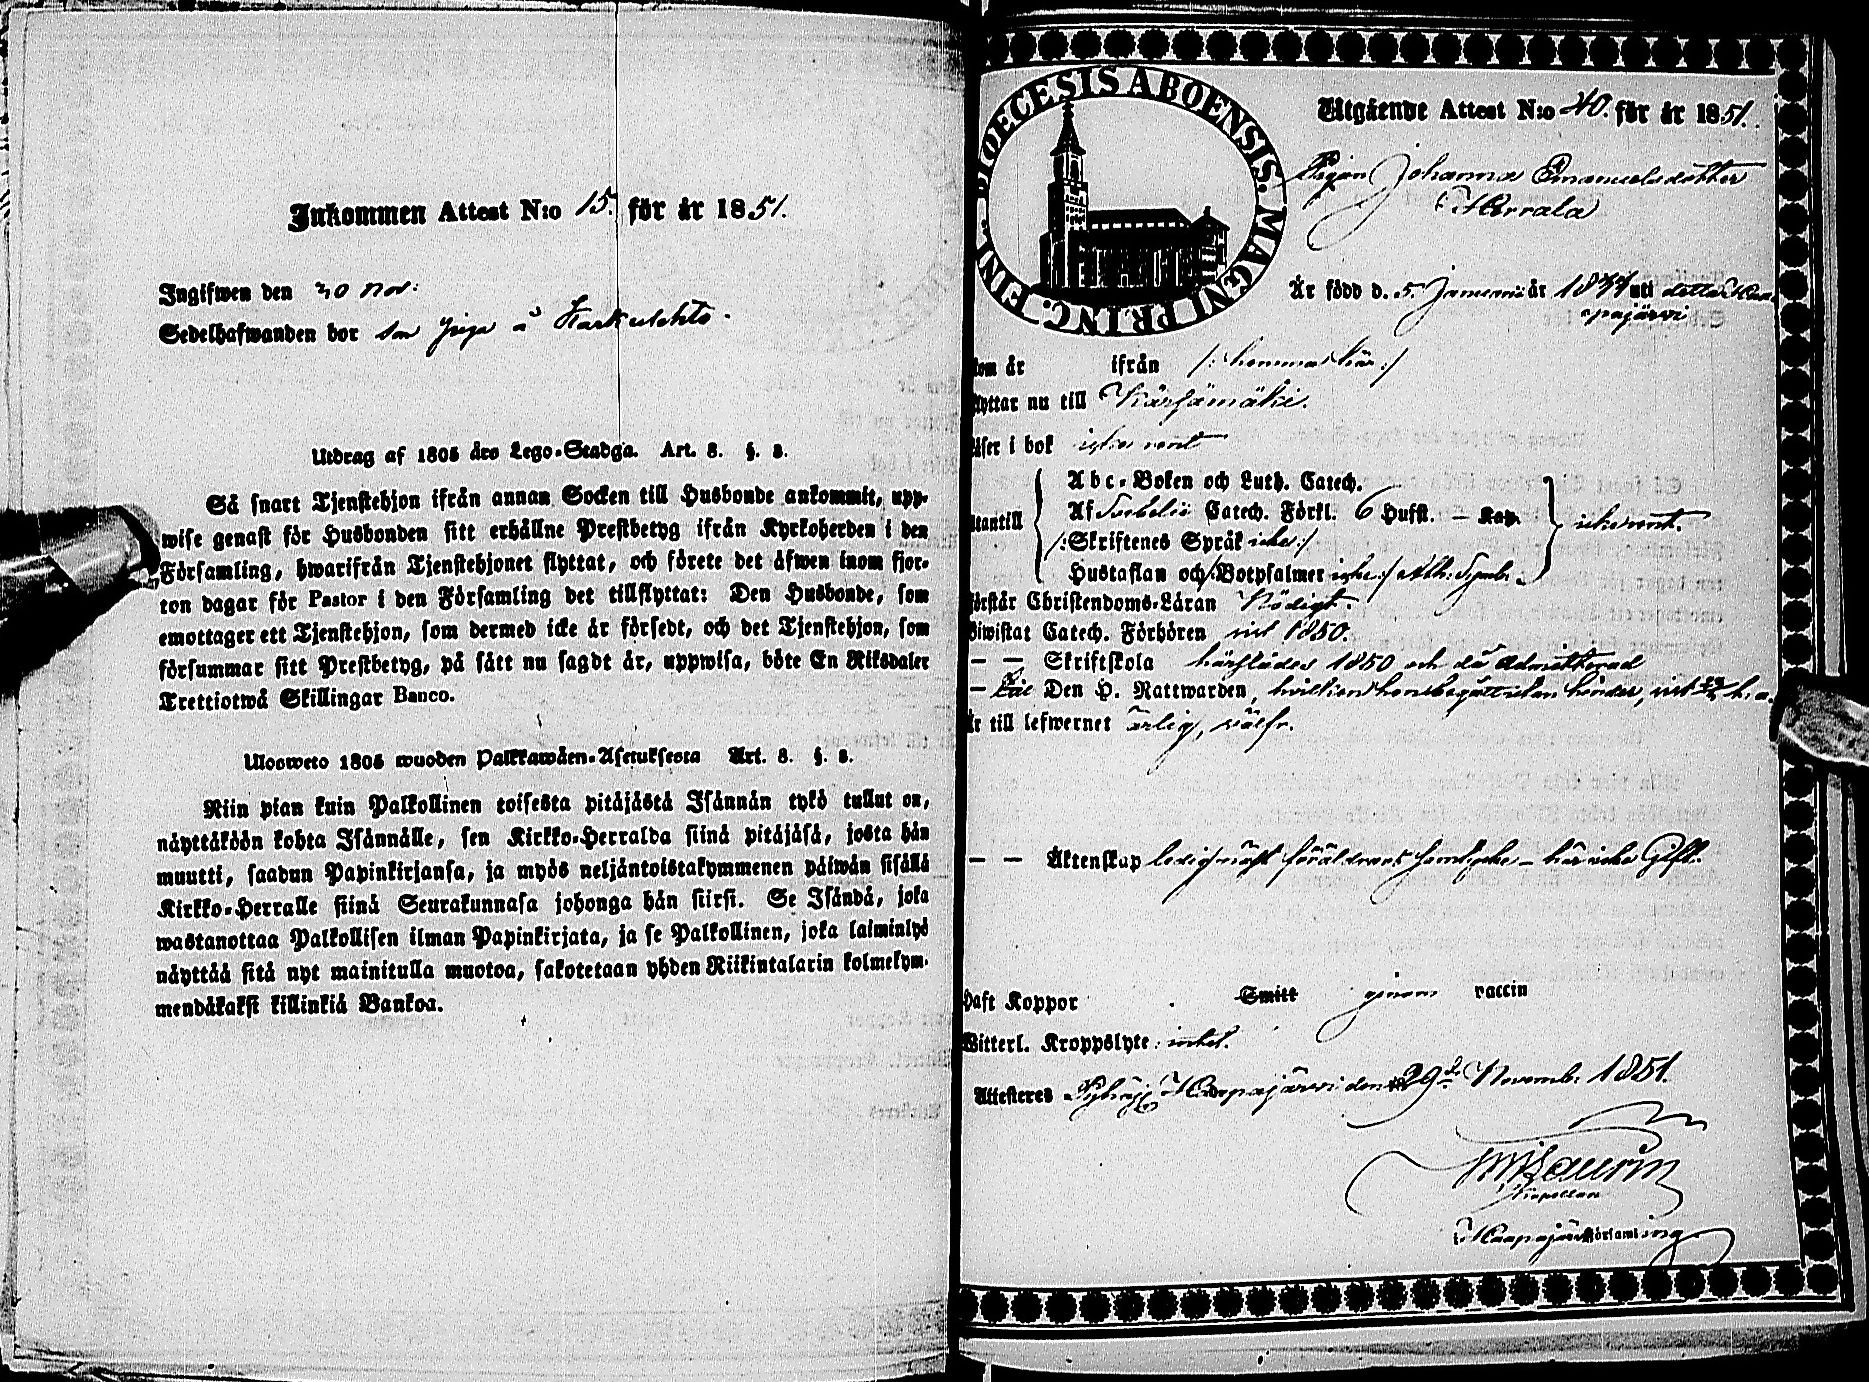 Inkommen Attest N:o 15. för år 1851.
Ingifwen den 30 Nov:
Sedelhafwanden bor som piga å Karkulehto.
Utdrag af 1805 års Lego-Stadga. Art. 8. §. 8.
Så snart Tjenstehjon ifrån annan Socken till Husbonde ankommit, upp-
wise genast för Husbonden sitt erhållne Prestbetyg ifrån Kyrkoherden i den
Församling, hwarifrån Tjenstehjonet flyttat, och förete det äfwen inom fjor-
ton dagar för Pastor i den Församling det tillflyttat: Den Husbonde, som
emottager ett Tjenstehjon, som dermed icke är försedt, och det Tjenstehjon, som
försummar sitt Prestbetyg, på sätt nu sagdt är, uppwisa, böte En Riksdaler
Trettiotwå Skillingar Banco.
Ulosweto 1805 wuoden Palkkawäen-Asetuksesta Art. 8. §. 8.
Niin pian kuin Palkollinen toisesta pitäjästä Isännän tykö tullut on,
näyttäköön kohta Isännälle, sen Kirkko-Herralda siinä pitäjäsä, josta hän
muutti, saadun Papinkirjansa, ja myös neljäntoistakymmenen päiwän sisällä
Kirkko-Herralle siinä Seurakunnasa johonga hän siirsi. Se Isändä, joka
wastanottaa Palkollisen ilman Papinkirjata, ja se Palkollinen, joka laiminlyö
näyttää sitä nyt mainitulla muotoa, sakotetaan yhden Riikintalarin kolmekym-
mendäkaksi killinkiä Bankoa.
FINL. DIOECESIS ABOENSIS. MAGNI PRINC.
Utgående Attest N:o 40. för år 1851.
Pigan Johanna Emanuelsdotter
Herrala
Är född d. 5. Januarii år uti detta Kaa-
pajärvi
om år ifrån /: hemma här :/
yttar nu till Kärsämäki.
äser i bok icke rent
Abc-Boken och Luth. Catech.
Af Svebelii Catech. Förkl. 6 Hufst. – Kap.
utantill icke rent.
/: Skriftenes Språk icke :/
Hustaflan och /: Botpsalmer icke :/ Ath: Symb.
örstår Christendoms-Läran Nödigt.
Biwistat Catech. Förhören sist 1850.
— — Skriftskola härstädes 1850 och då Admitterad
— Den H. Nattwarden, hvilken hon begått utan hinder, sist
är till lefwernet ärlig, välfr.
— — Äktenskap ledig – här icke
Haft Koppor Smitt genom vaccin
Witterl. Kroppslyte: intet.
Attesteres den 29de Novemb: 1851.
Kapellan
församling